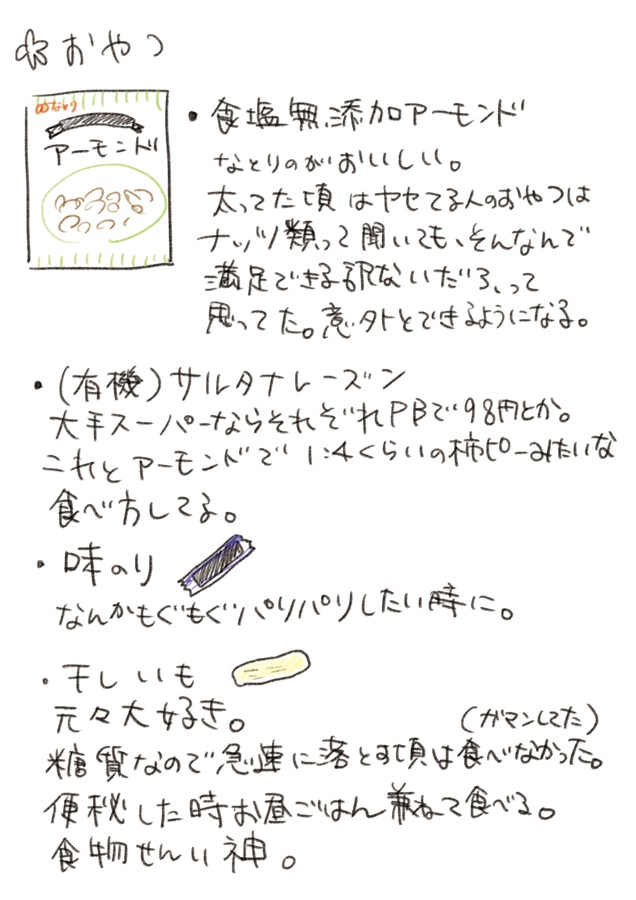 おやつ
なとり
アーモンド
・食塩無添加アーモンド
なとりのがおいしい。
太ってた頃はヤセてる人のおやつは
ナッツ類って聞いても、そんなんで
満足できる訳ないだろ、って
思ってた。意外とできるようになる。
・(有機)サルタナレーズン
大手スーパーならそれぞれPBで98円とか。
これとアーモンドで1:4くらいの柿ピーみたいな
食べ方してる。
・味のり
なんかもぐもぐパリパリしたい時に。
・干しいも
元々大好き。
(ガマンしてた)
糖質なので急速に落とす頃は食べなかった。
便秘した時お昼ごはん兼ねて食べる。
食物せんい神。